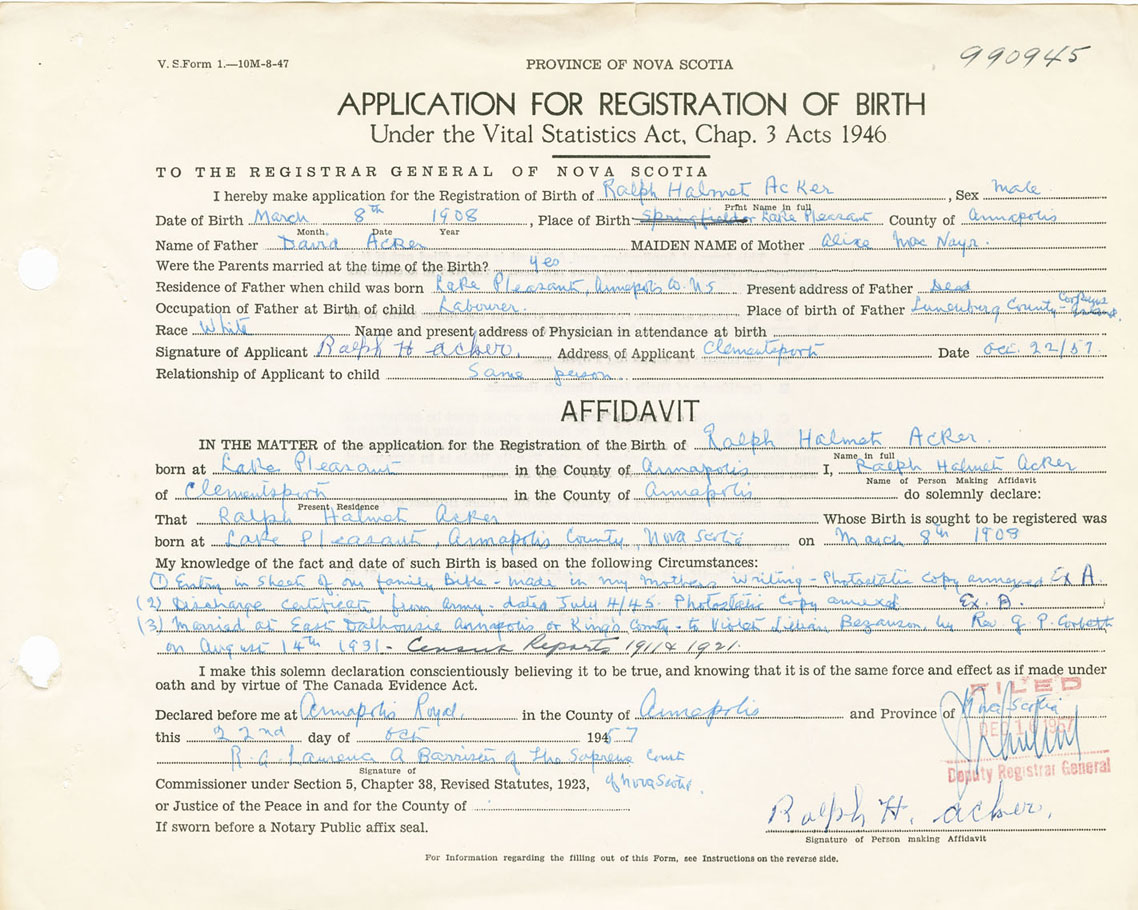 V. S. Form 1.—10M-8-47
PROVINCE OF NOVA SCOTIA
990945
APPLICATION FOR REGISTRATION OF BIRTH
Under the Vital Statistics Act, Chap. 3 Acts 1946
TO THE REGISTRAR GENERAL OF NOVA SCOTIA
I hereby make application for the Registration of Birth of Ralph Halmet Acker, Sex male
Print Name in full
Date of Birth March 8th 1908, Place of Birth Springfield or Lake Pleasant County of Annapolis
Month. Date Year
Name of Father David Acker MAIDEN NAME of Mother Alice Mac Nayr.
Were the Parents married at the time of the Birth? yes
Residence of Father when child was born Lake Pleasant, Annapolis Co. NS Present address of Father Dead
Occupation of Father at Birth of child Labourer. Place of birth of Father Lunenburg County - Island.
Race White Name and present address of Physician in attendance at birth
Signature of Applicant Ralph H acker. Address of Applicant Clementsport Date Oct. 22/57
Relationship of Applicant to child Same person.
AFFIDAVIT
IN THE MATTER of the application for the Registration of the Birth of Ralph Halmet Acker.
Name in full
born at Lake Pleasant in the County of Annapolis I, Ralph Halmet Acker
Name of Person Making Affidavit
of Clementsport in the County of Annapolis do solemnly declare:
Present Residence
That Ralph Halmet Acker Whose Birth is sought to be registered was
born at Lake Pleasant, Annapolis County, Nova Scotia on March 8th 1908
My knowledge of the fact and date of such Birth is based on the following Circumstances:
(1) Entry in Sheet of our family Bible - made in my Mothers writing - Photostatic Copy annexed Ex A.
(2) Discharge Certificate from Army - dated July 4/45. Photostatic Copy annexed Ex. B.
(3) Married at East Dalhousie Annapolis or Kings County - to Violet Lilian Bezanson, by Rev G. P. Corbett
on August 14th 1931 - Census Reports 1911 & 1921.
I make this solemn declaration conscientiously believing it to be true, and knowing that it is of the same force and effect as if made under
oath and by virtue of The Canada Evidence Act.
FILED
Declared before me at Annapolis Royal, in the County of Annapolis and Province of Nova Scotia
DEC 16 1957
this 22nd day of Oct 1957
R. A. Laurence A Barrister of The Supreme Court
Deputy Registrar General
Signature of
Commissioner under Section 5, Chapter 38, Revised Statutes, 1923, of Nova Scotia.
or Justice of the Peace in and for the County of
Ralph H. acker.
If sworn before a Notary Public affix seal.
Signature of Person making Affidavit
For Information regarding the filling out of this Form, see Instructions on the reverse side.